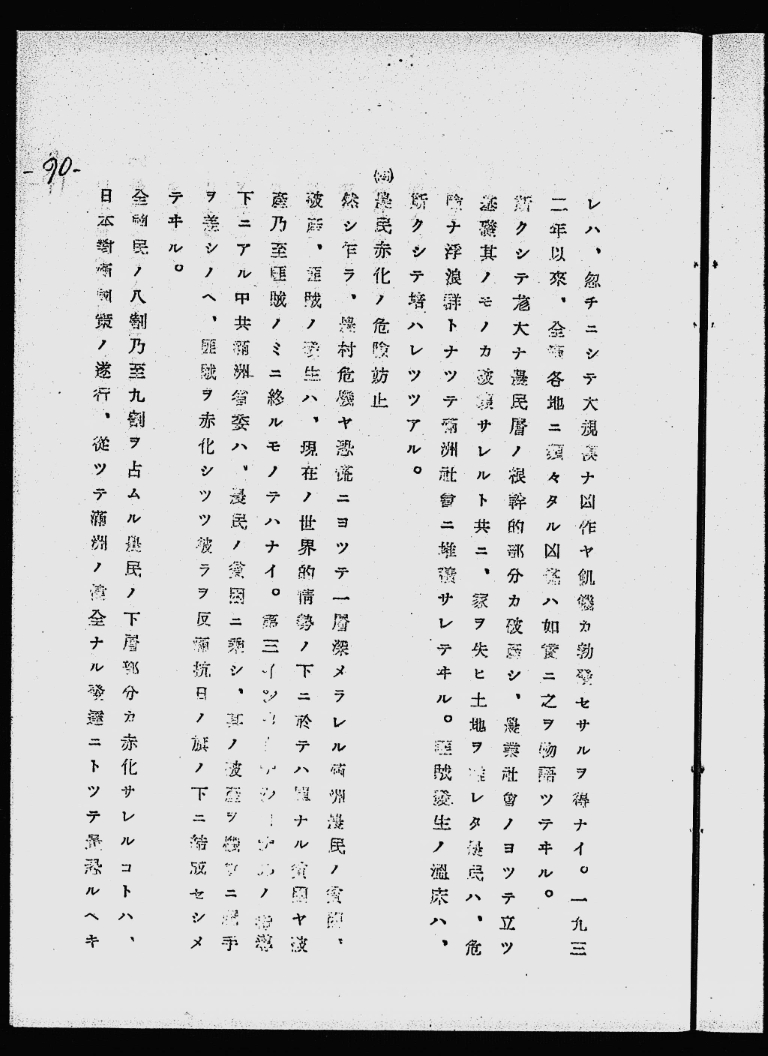 -90-
レハ、忽チニシテ大規模ナ凶作ヤ飢饉カ勃發セサルヲ得ナイ。一九三
二年以來、全滿各地ニ頻々タル凶荒ハ如實ニ之ヲ物語ツテヰル。
斯クシテ尨大ナ農民層ノ根幹的部分カ破產シ、農業社會ノヨツテ立ツ
基礎其ノモノカ破壞サレルト共ニ、家ヲ失ヒ土地ヲ離レタ農民ハ、危
險ナ浮浪群トナツテ滿洲社會ニ堆積サレテヰル。匪賊發生ノ溫床ハ、
斯クシテ培ハレツツアル。
農民赤化ノ危險防止
然シ乍ラ、農村危機ヤ恐慌ニヨツテ一層深メラレル滿洲農民ノ貧困、
破產、匪賊ノ發生ハ、現在ノ世界的情勢ノ下ニ於テハ單ナル貧困ヤ破
產乃至匪賊ノミニ終ルモノテハナイ。第三インターナショナルノ指導
下ニアル中共滿洲省委ハ、農民ノ貧困ニ乘シ、其ノ破產ヲ機ニ手
ヲ差シノヘ、匪賊ヲ赤化シツツ彼ラヲ反滿抗日ノ旗ノ下ニ結成セシメ
テヰル。
全農民ノ八割乃至九割ヲ占ムル農民ノ下層部分カ赤化サレルコトハ、
日本對滿國策ノ遂行、從ツテ滿洲ノ健全ナル發達ニトツテ最恐ルヘキ